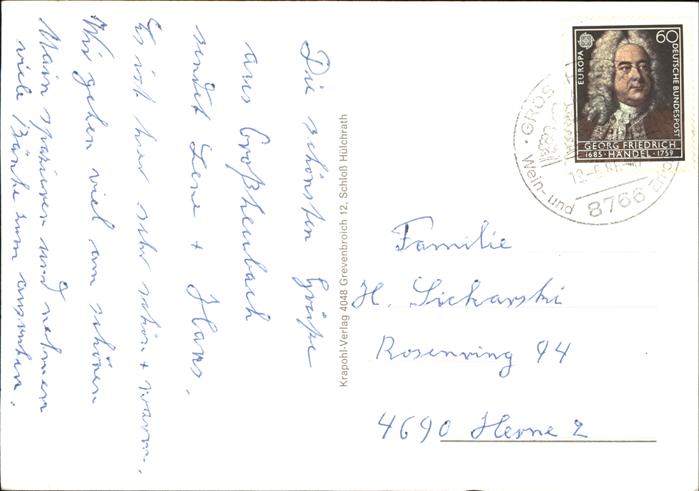 Die schönsten Grüße
aus Großheubach
sendet Lene + Hans.
Es ist hier sehr schön + warm.
Wir gehen viel am schönen
Main spazieren und nehmen
viele Bänke zum ausruhen.
Krapohl-Verlag 4048 Grevenbroich 12, Schloß Hülchrath
EUROPA
60
DEUTSCHE BUNDESPOST
GEORG FRIEDRICH
1685 · HÄNDEL · 1759
Wein- und
8766
Familie
H. Sickarski
Rosenring 94
4690 Herne 2